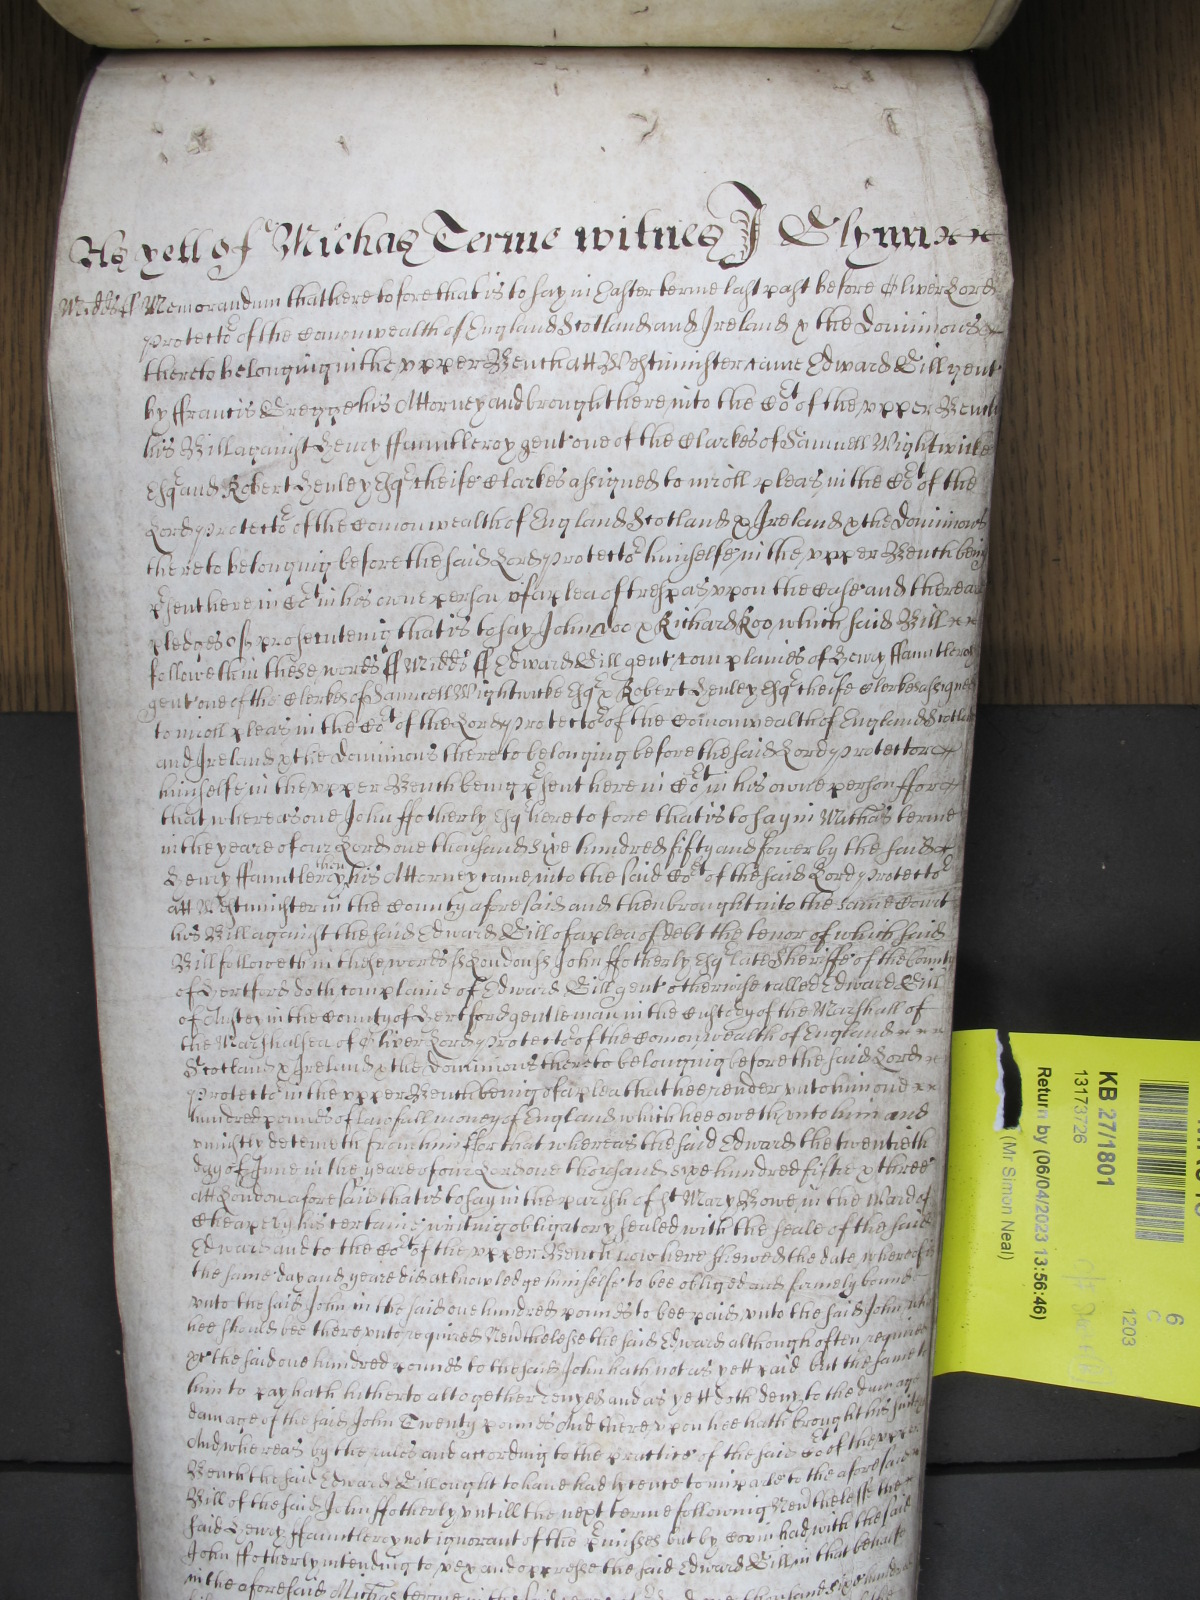 As yett of Michas Terme witnes J Glynn
Midds ss Memorandum that heretofore that is to say in Easter terme last past before Oliver Lord
Protector of the Comonwealth of England Scotland and Ireland & the Dominions
thereto belonging in the upper Bench att Westminister came Edward Gill gent
by ffrancis Gregge his Attorney and brought here into the Cot of the upper Bench
his Bill against Henry ffauntleroy gent one of the Clarkes of Samuell Wightwicke
Esqr and Robert Henley Esqr cheife Clarkes assigned to inroll pleas in the Cot of the
Lord Protector of the Comonwealth of England Scotland & Ireland & the Dominions
thereto belonging before the said Lord Protector himselfe in the upper Bench being
psent here in Cot in his owne person of a plea of trespas upon the Case and there are
pledges of prosecuteing that is to say John Doo & Richard Roo, which said Bill
followeth in these words ss Midds ss Edward Gill gent complaines of Henry ffauntleroy
gent one of the Clerkes of Samuell Wightwicke Esqr & Robert Henley Esqr cheife Clerkes assigned
to inroll pleas in the Cot of the Lord Protector of the Comonwealth of England Scotland
and Ireland & the Dominions thereto belonging before the said Lord Protector
himselfe in the upper Bench being psent here in Cot in his owne person ffor
that whereas one John ffotherly Esqr heretofore that is to say in Michas terme
in the yeare of our Lord one thousand sixe hundred fifty and fower by the said
Henry ffauntleroy then his Attorney came into the said Cot of the said Lord Protector
att Westminister in the County aforesaid and then brought into the same Court
his Bill against the said Edward Gill of a plea of debt the tenor of which said
Bill followeth in these words ss London ss John ffotherly Esqr late Sheriffe of the County
of Hertford doth complaine of Edward Gill gent otherwise called Edward Gill
of Anstey in the County of Hertford gentleman in the Custody of the Marshall of
the Marshalsea of Oliver Lord Protector of the Comonwealth of England
Scotland & Ireland & the Dominions thereto belonging before the said Lord
Protector in the upper Bench being of a plea that hee render unto him one
hundred pounds of lawfull money of England which hee oweth unto him and
uniustly deteineth from him ffor that whereas the said Edward the twentieth
day of June in the yeare of our Lord one thousand sixe hundred fiftie & three
att London aforesaid that is to say in the parish of St Mary Bowe in the Ward of
Cheape by his certaine writing obligatory sealed with the seale of the said
Edward and to the Cot of the upper Bench now here shewed the date whereof is
the same day and yeare did acknowledge himselfe to bee obliged and firmely bound
unto the said John in the said one hundred pounds to bee paid unto the said John when
hee should bee thereunto required Nevtheless the said Edward although often required
the said one hundred pounds to the said John hath not as yett paid but the same to
him to pay hath hitherto altogether denyed and as yett doth deny to the damage
damage of the said John Twenty pounds And thereupon hee hath brought his suite
And whereas by the rules and according to the practice of the said Cot of the upper
Bench the said Edward Gill ought to have had lycence to imparle to the aforesaid
Bill of the said John ffotherly untill the next terme following Nevtheless the
said Henry ffauntleroy not ignorant of the pmisses but by Covin had with the said
John ffotherly intending to vex and oppresse the said Edward Gill in that behalfe
in the aforesaid Michas terme in the said yeare of
KB 27/1801
13173726
Return by (06/04/2023 13:56:46)
(Mr Simon Neal)
6
C
1203